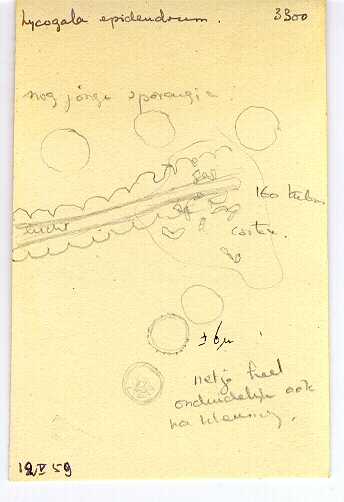 Lycogala epidendrum. 3300
nog jonge sporangia.
160 tubus
lucht
cortex.
± 6 µ
netje heel
onduidelijk ook
na kleuring.
12 V 59